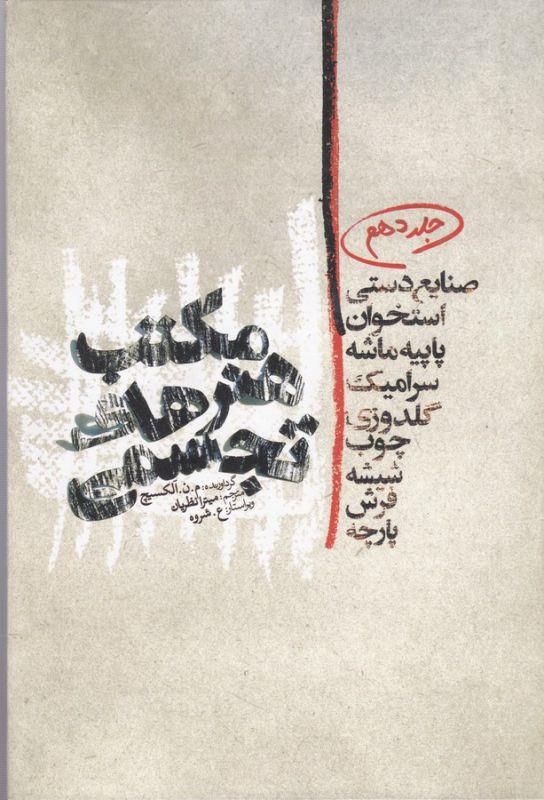 جلد دهم
صنایع دستی
استخوان
پاپیه ماشه
سرامیک
گلدوزی
چوب
شیشه
فرش
پارچه
مکتب
هنرهای
تجسمی
گردآورنده: م. ن. آلکسیچ
مترجم: میترا نظریان
ویراستار: ع. شروه